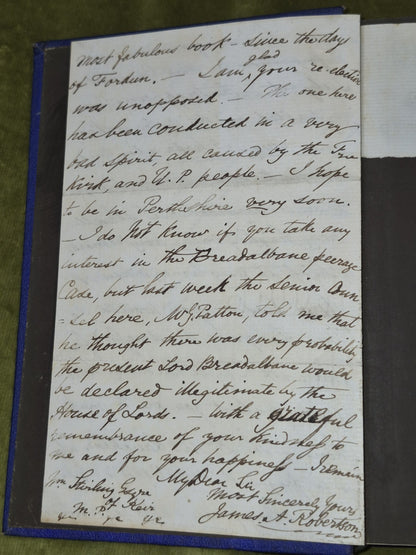 most fabulous book – since the days
of Fordun. – I am glad your re-election
was unopposed – The one here
has been conducted in a very
bad spirit all caused by the Free
Kirk, and U. P. people. – I hope
to be in Perthshire very soon.
– I do not know if you take any
interest in the Breadalbane peerage
Case, but last week the Senior Coun
-sel here, Mr. Patton, told me that
he thought there was every probability
the present Lord Breadalbane would
be declared illegitimate by the
House of Lords. – With a grateful
remembrance of your kindness to
me and for your happiness – I remain
My Dear Sir
Most Sincerely Yours
James A. Robertson
Wm Stirling Esqre
M.P. Keir
&c &c &c